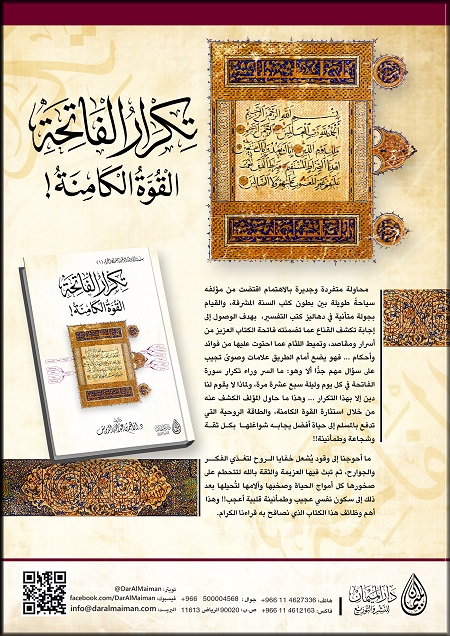 تكرار الفاتحة
القوة الكامنة!
بسم الله الرحمن الرحيم
تكرار الفاتحة
القوة الكامنة!
محاولة متفردة وجديرة بالاهتمام اقتضت من مؤلفه
سياحةً طويلة بين بطون كتب السنة المشرفة، والقيام
بجولة متأنية في دهاليز كتب التفسير، بهدف الوصول إلى
إجابة تكشف القناع عما تضمنته فاتحة الكتاب العزيز من
أسرار ومقاصد، وتميط اللثام عما احتوت عليها من فوائد
وأحكام ... فهو يضع أمام الطريق علامات وصوىً تجيب
على سؤال مهم جدًّا ألا وهو: ما السر وراء تكرار سورة
الفاتحة في كل يوم وليلة سبع عشرة مرة، ولماذا لا يقوم لنا
دين إلا بهذا التكرار ... وهذا ما حاول المؤلف الكشف عنه
من خلال استثارة القوة الكامنة، والطاقة الروحية التي
تدفع بالمسلم إلى حياة أفضل يجابه شواغلها بكل ثقة
وشجاعة وطمأنينة!!
ما أحوجنا إلى وقود يُشعل خفايا الروح لتغذي الفكر
والجوارح، ثم تبث فيها العزيمة والثقة بالله لتتحطم على
صخورها كل أمواج الحياة وصخبها وآلامها لتُحيلها بعد
ذلك إلى سكون نفسي عجيب وطمأنينة قلبية أعجب!! وهذا
أهم وظائف هذا الكتاب الذي نصافح به قراءنا الكرام.
دار الميمان
للنشر والتوزيع
هاتف: 4627336 11 966+ جوال: 500004568 966+
فاكس: 4612163 11 966+ ص ب: 90020 الرياض 11613
تويتر: @DarAlMaiman
فيسبوك: facebook.com/DarAlMaiman
البريد: info@daralmaiman.com